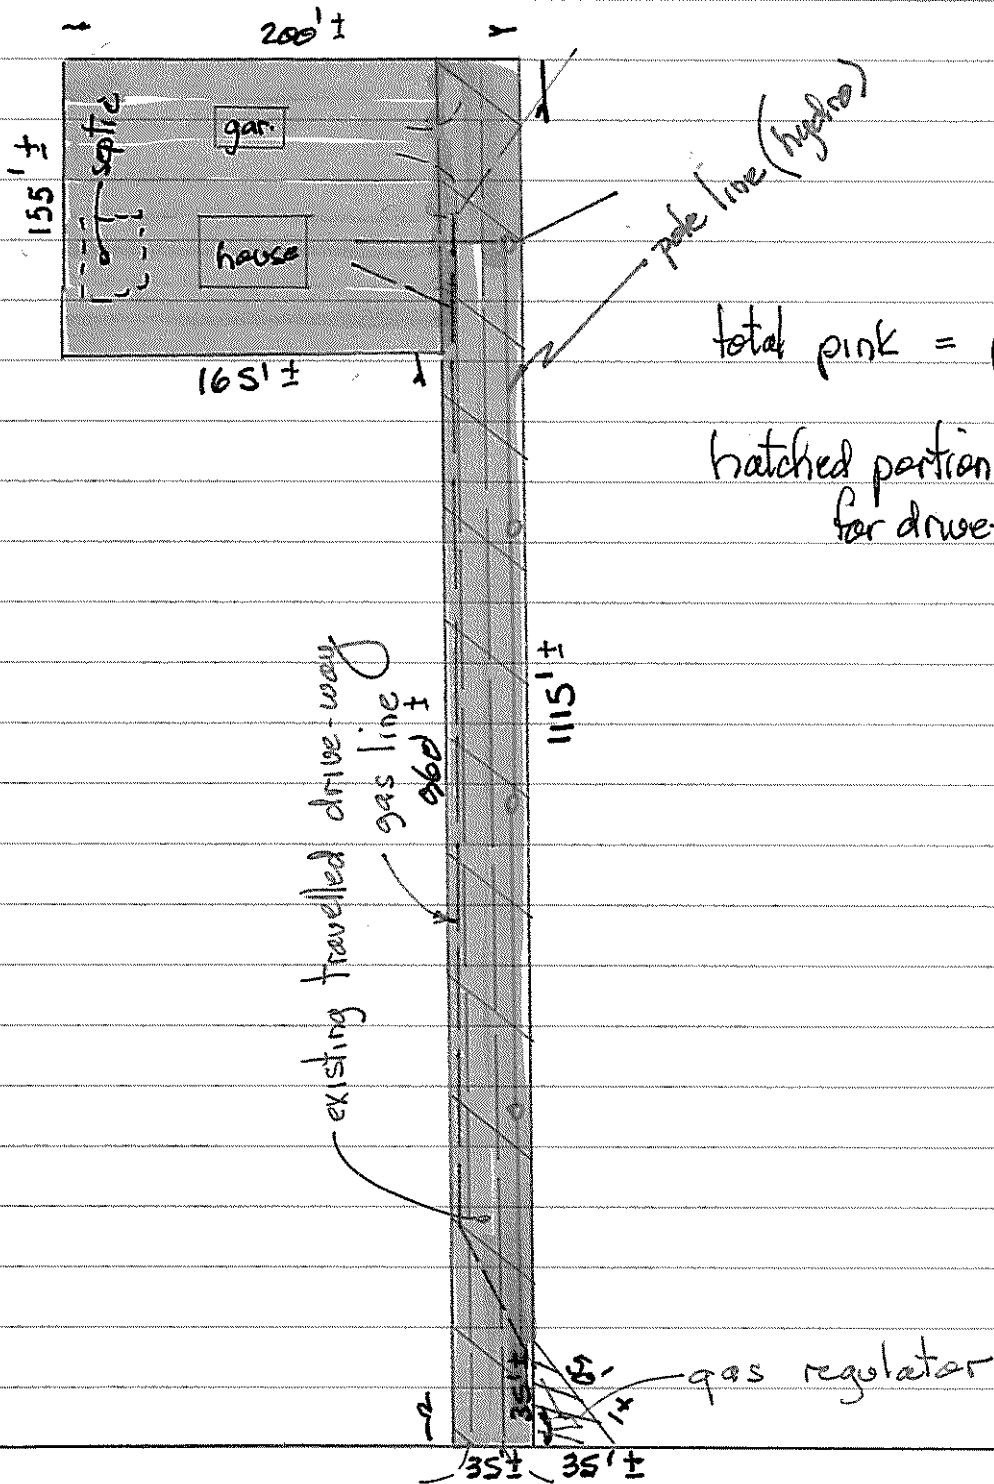 200'±
155'±
septic
gar.
house
165'±
pole line (hydro)
total pink =
hatched portion
for drive-
existing travelled drive-way
gas line
960'±
1115'±
35'±
gas regulator
35'±
35'±